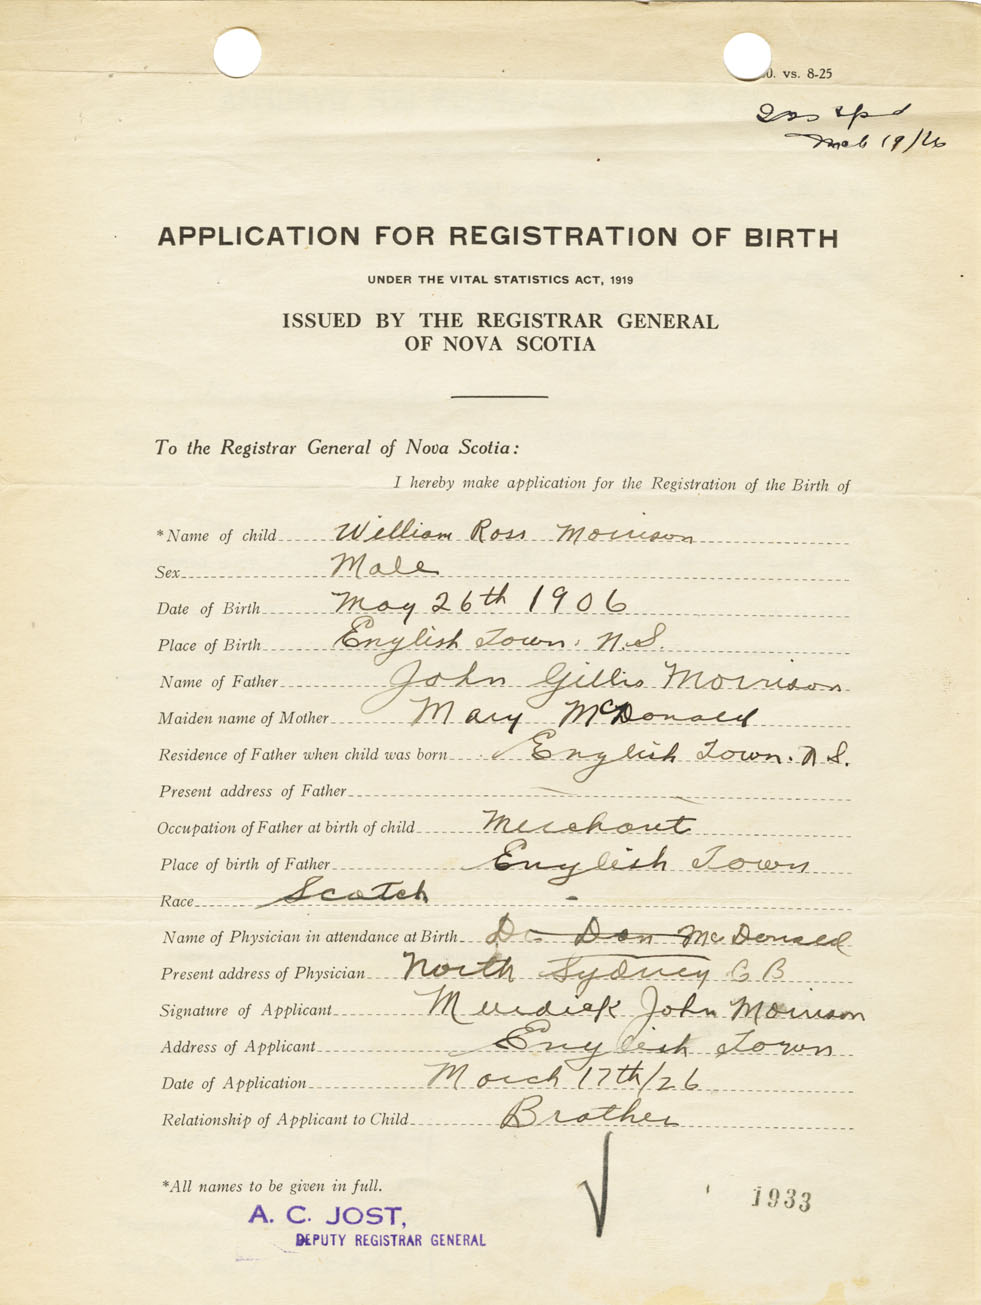 0. vs. 8-25
19/26
APPLICATION FOR REGISTRATION OF BIRTH
UNDER THE VITAL STATISTICS ACT, 1919
ISSUED BY THE REGISTRAR GENERAL
OF NOVA SCOTIA
To the Registrar General of Nova Scotia:
I hereby make application for the Registration of the Birth of
*Name of child William Ross Morrison
Sex Male
Date of Birth May 26th 1906
Place of Birth English Town. N.S.
Name of Father John Gillis Morrison
Maiden name of Mother Mary McDonald
Residence of Father when child was born English Town. N S.
Present address of Father
Occupation of Father at birth of child Merchant
Place of birth of Father English Town
Race Scotch
Name of Physician in attendance at Birth Dr. Dan McDonald
Present address of Physician North Sydney C B
Signature of Applicant Murdick John Morrison
Address of Applicant English Town
Date of Application March 17th/26
Relationship of Applicant to Child Brother
*All names to be given in full.
1933
A. C. JOST,
DEPUTY REGISTRAR GENERAL